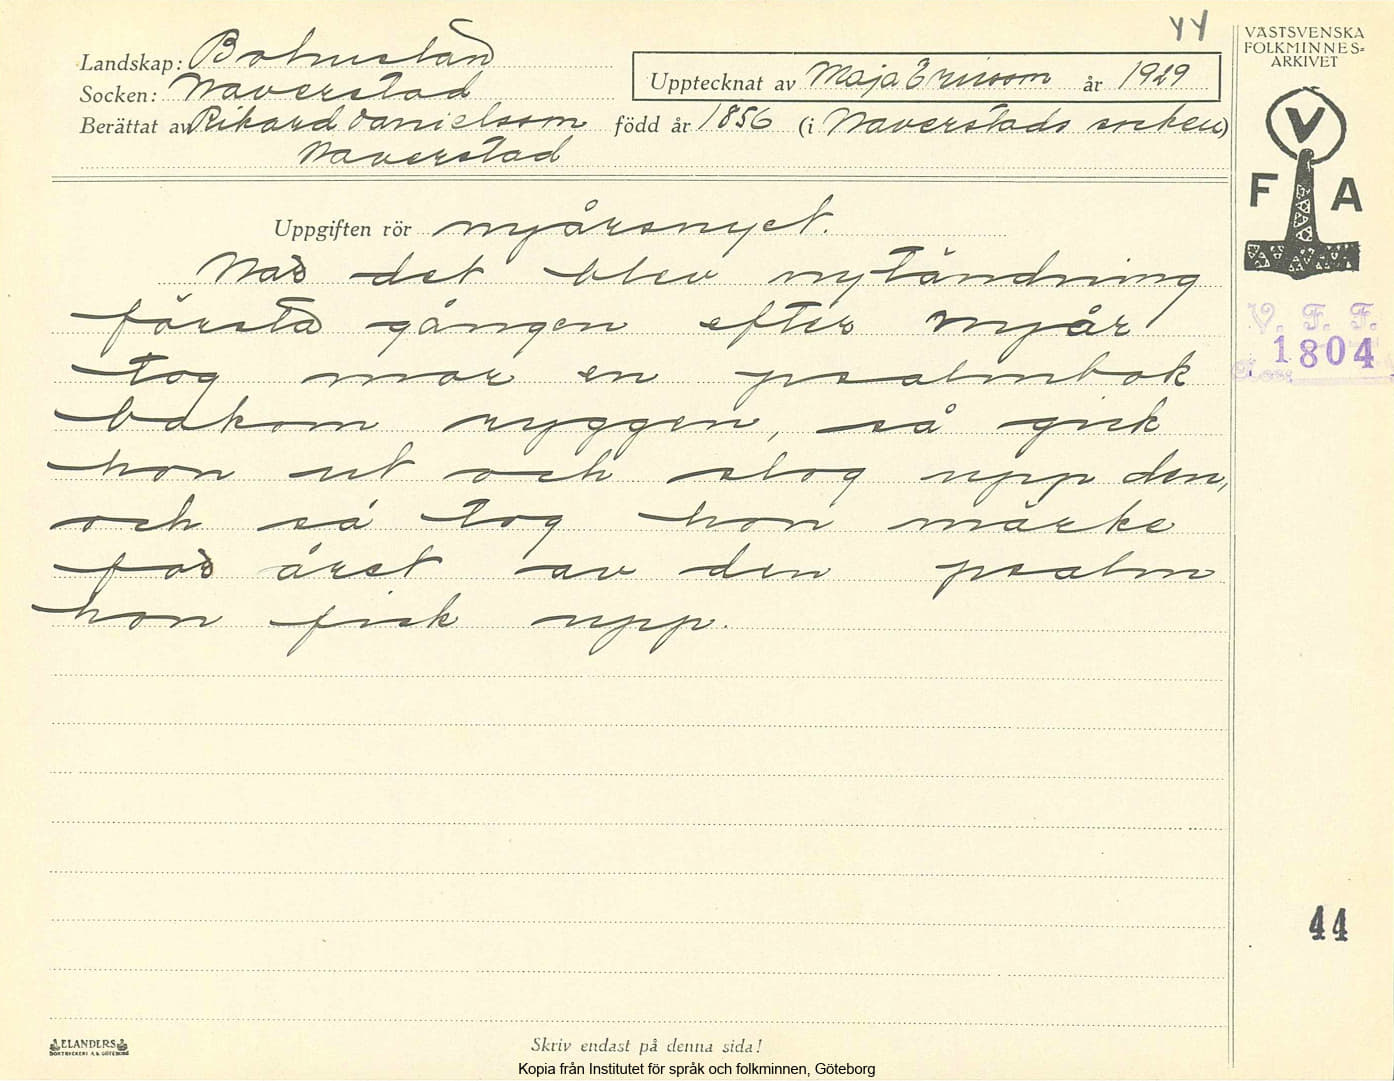 44
Landskap: Bohuslän
Socken: Naverstad
Upptecknat av Maja Ericsson år 1929
Berättat av Rikard Danielsson född år 1856 (i Naverstads socken)
Naverstad
Uppgiften rör nyårsnyet.
När det blev nytändning
första gången efter nyår
tog mor en psalmbok
bakom ryggen, så gick
hon ut och slog upp den,
och så tog hon märke
för året av den psalm
hon fick upp.
VÄSTSVENSKA
FOLKMINNES=
ARKIVET
V
F A
V. F. F.
1804
44
ELANDERS
BOKTRYCKERI A.B. GÖTEBORG
Skriv endast på denna sida!
Kopia från Institutet för språk och folkminnen, Göteborg